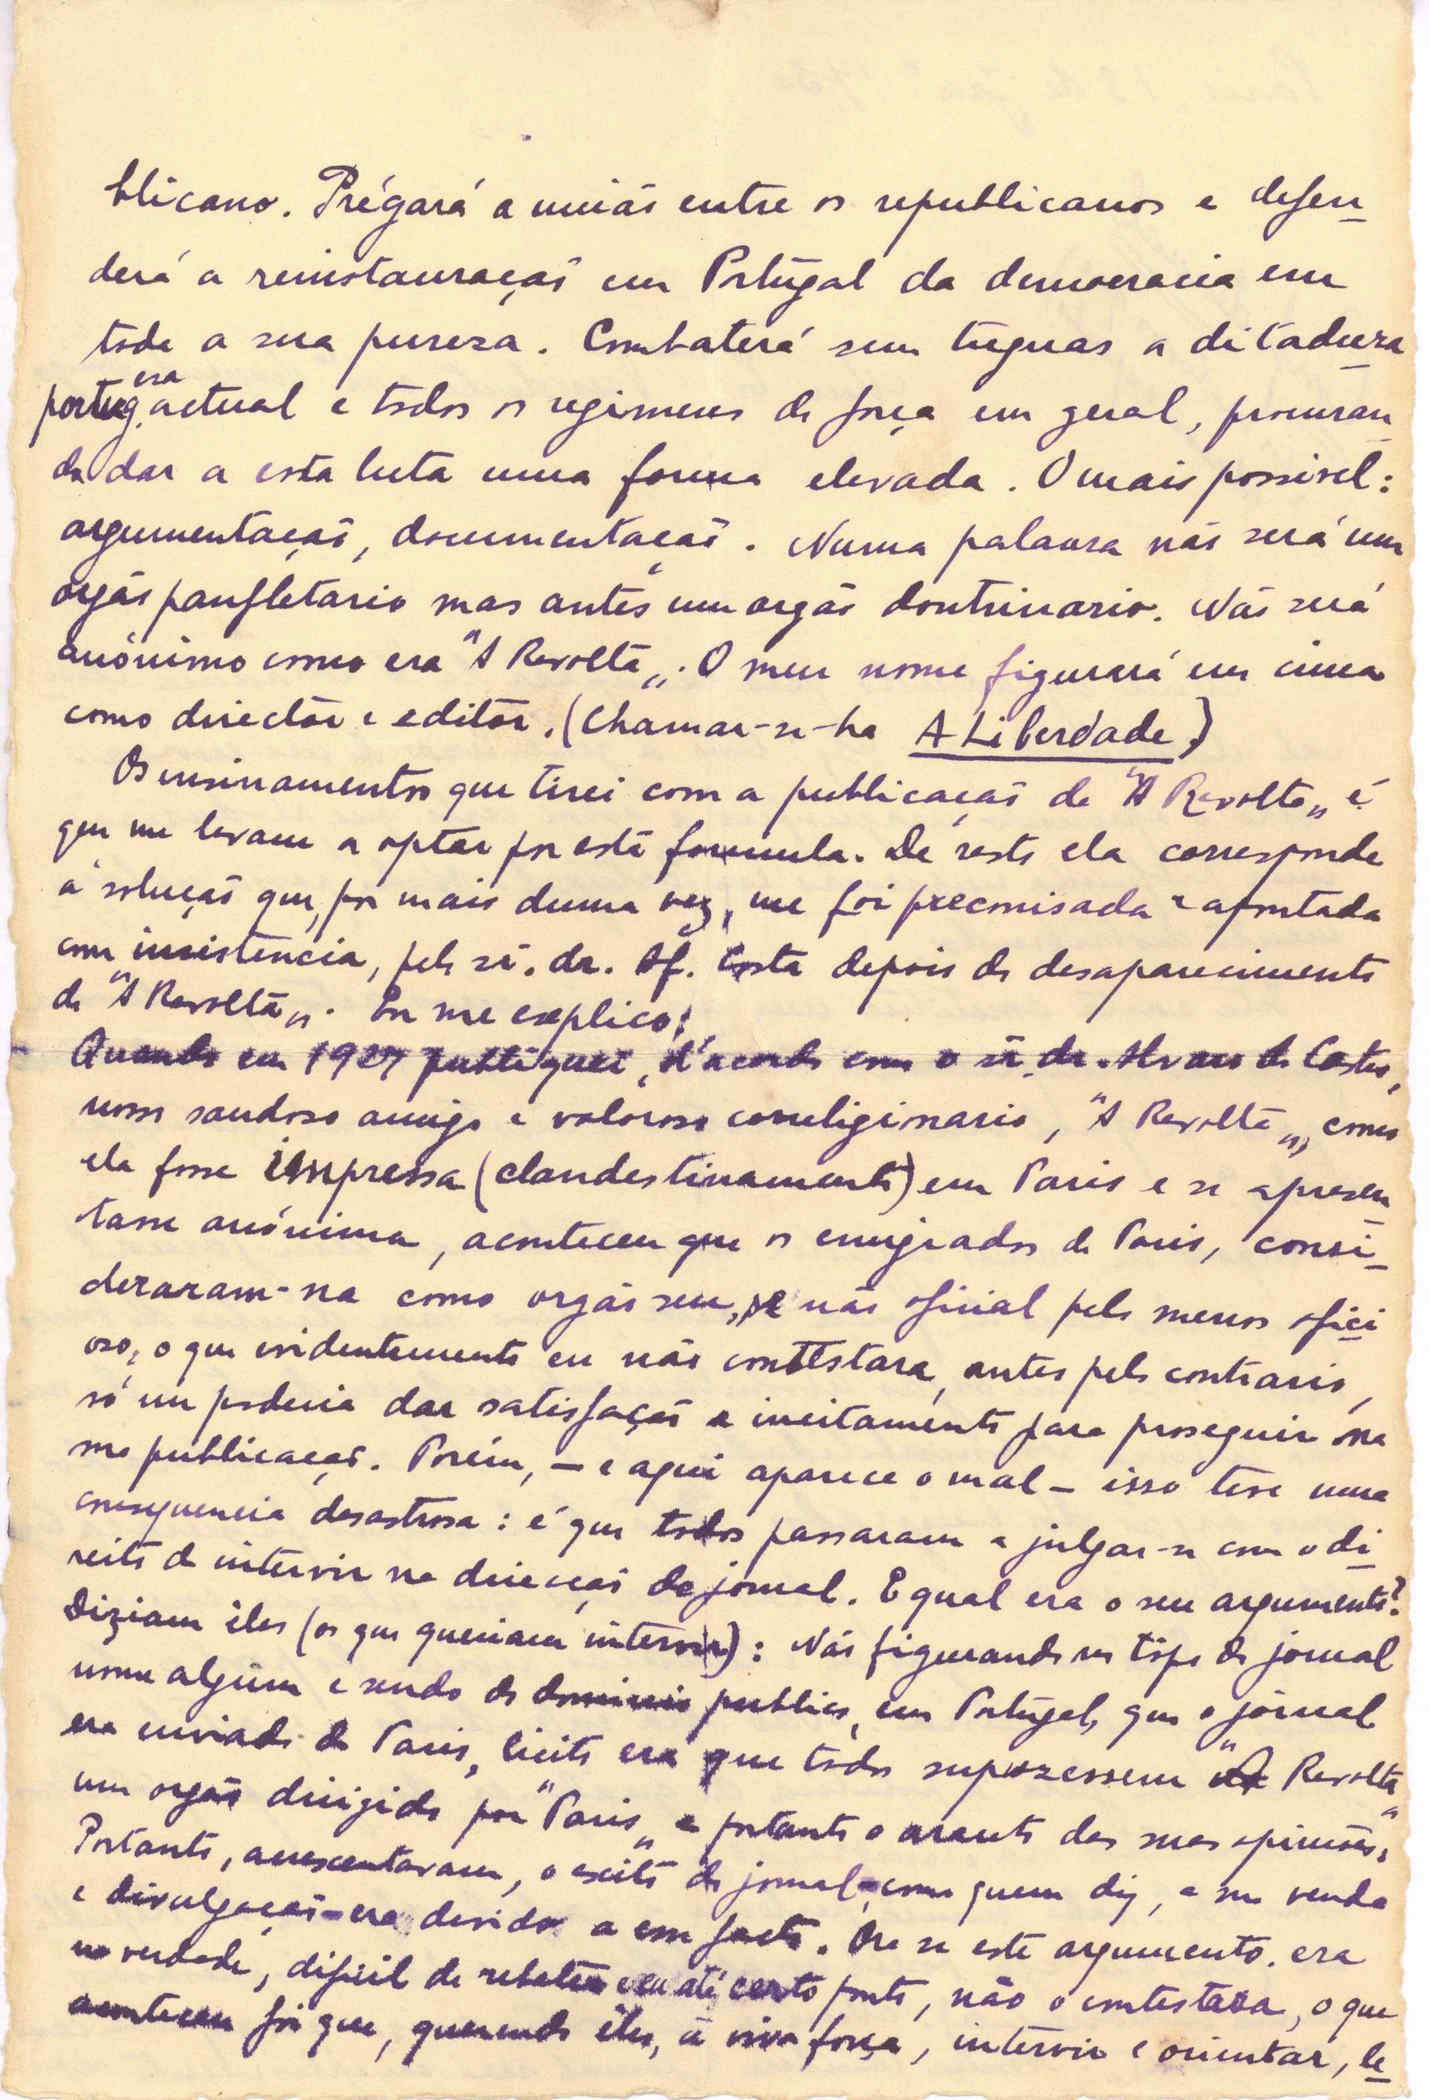 blicano. Prégará a união entre os republicanos e defen-
derá a reinstauração em Portugal da democracia em
toda a sua pureza. Combaterá sem tréguas a ditadura
portug.esa actual e todos os regimenes de força em geral, procuran-
do dar a esta luta uma forma elevada. O mais possivel:
argumentação, documentação. Numa palavra não será um
orgão panfletario mas antes um orgão doutrinario. Não será
anónimo como era "A Revolta„. O meu nome figurará em cima
como director e editor. (Chamar-se-ha A Liberdade.)
Os ensinamentos que tirei com a publicação de "A Revolta„ é
que me levam a optar por esta formula. De resto ela corresponde
á solução que, por mais duma vez, me foi preconisada e apontada
com insistencia, pelo sr. dr. Af. Costa depois do desaparecimento
de "A Revolta„. Eu me explico:
Quando em 1927 publiquei, d'acordo com o sr. dr. Alvaro de Castro,
nosso saudoso amigo e valoroso correligionario, "A Revolta„, como
ela fosse impressa (clandestinamente) em Paris e se apresen-
tasse anónima, aconteceu que os emigrados de Paris, consi-
deraram-na como orgão seu, se não oficial pelo menos ofici-
oso, o que evidentemente eu não contestara, antes pelo contrario,
só me poderia dar satisfação e incitamento para proseguir na
sua publicação. Porém, — e aqui aparece o mal — isso teve uma
consequencia desastrosa: é que todos passaram a julgar-se com o di-
reito de intervir na direcção do jornal. E qual era o seu argumento?
Diziam êles (os que queriam intervir): Não figurando no tôpo do jornal
nome algum e sendo do dominio publico, em Portugal, que o jornal
era enviado de Paris, licito era que todos supozessem "A Revolta„
um orgão dirigido por "Paris„ e portanto o arauto das suas opiniões.
Portanto, acrescentavam, o exito do jornal - como quem diz, a sua venda
e divulgação - era devido a esse facto. Ora se este argumento era
na verdade, dificil de rebater e eu até certo ponto, não o contestava, o que
aconteceu foi que, querendo êles, á viva força, intervir e orientar, le-